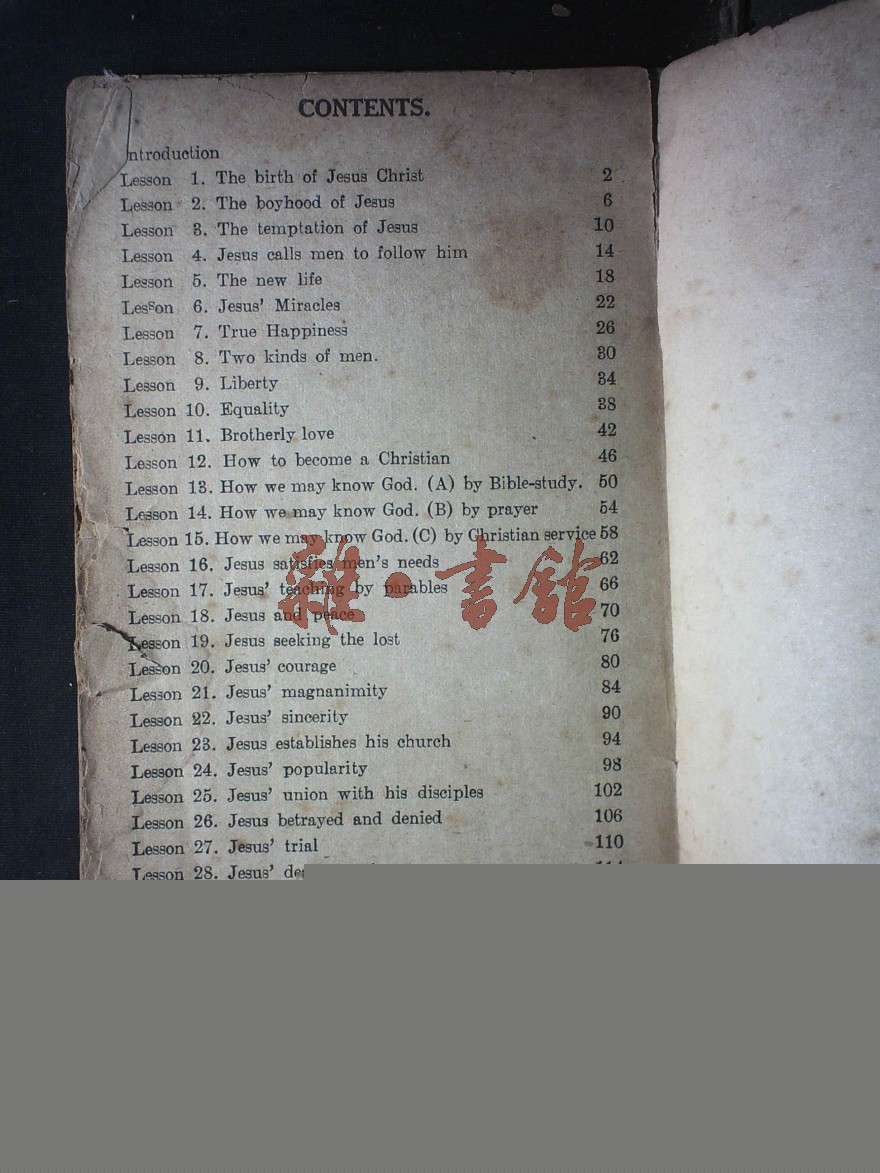 CONTENTS.
ntroduction
Lesson 1. The birth of Jesus Christ 2
Lesson 2. The boyhood of Jesus 6
Lesson 3. The temptation of Jesus 10
Lesson 4. Jesus calls men to follow him 14
Lesson 5. The new life 18
Lesson 6. Jesus' Miracles 22
Lesson 7. True Happiness 26
Lesson 8. Two kinds of men. 30
Lesson 9. Liberty 34
Lesson 10. Equality 38
Lesson 11. Brotherly love 42
Lesson 12. How to become a Christian 46
Lesson 13. How we may know God. (A) by Bible-study. 50
Lesson 14. How we may know God. (B) by prayer 54
Lesson 15. How we may know God. (C) by Christian service 58
Lesson 16. Jesus satisfies men's needs 62
Lesson 17. Jesus' teaching by parables 66
Lesson 18. Jesus and peace 70
Lesson 19. Jesus seeking the lost 76
Lesson 20. Jesus' courage 80
Lesson 21. Jesus' magnanimity 84
Lesson 22. Jesus' sincerity 90
Lesson 23. Jesus establishes his church 94
Lesson 24. Jesus' popularity 98
Lesson 25. Jesus' union with his disciples 102
Lesson 26. Jesus betrayed and denied 106
Lesson 27. Jesus' trial 110
Lesson 28. Jesus'
雜·書館